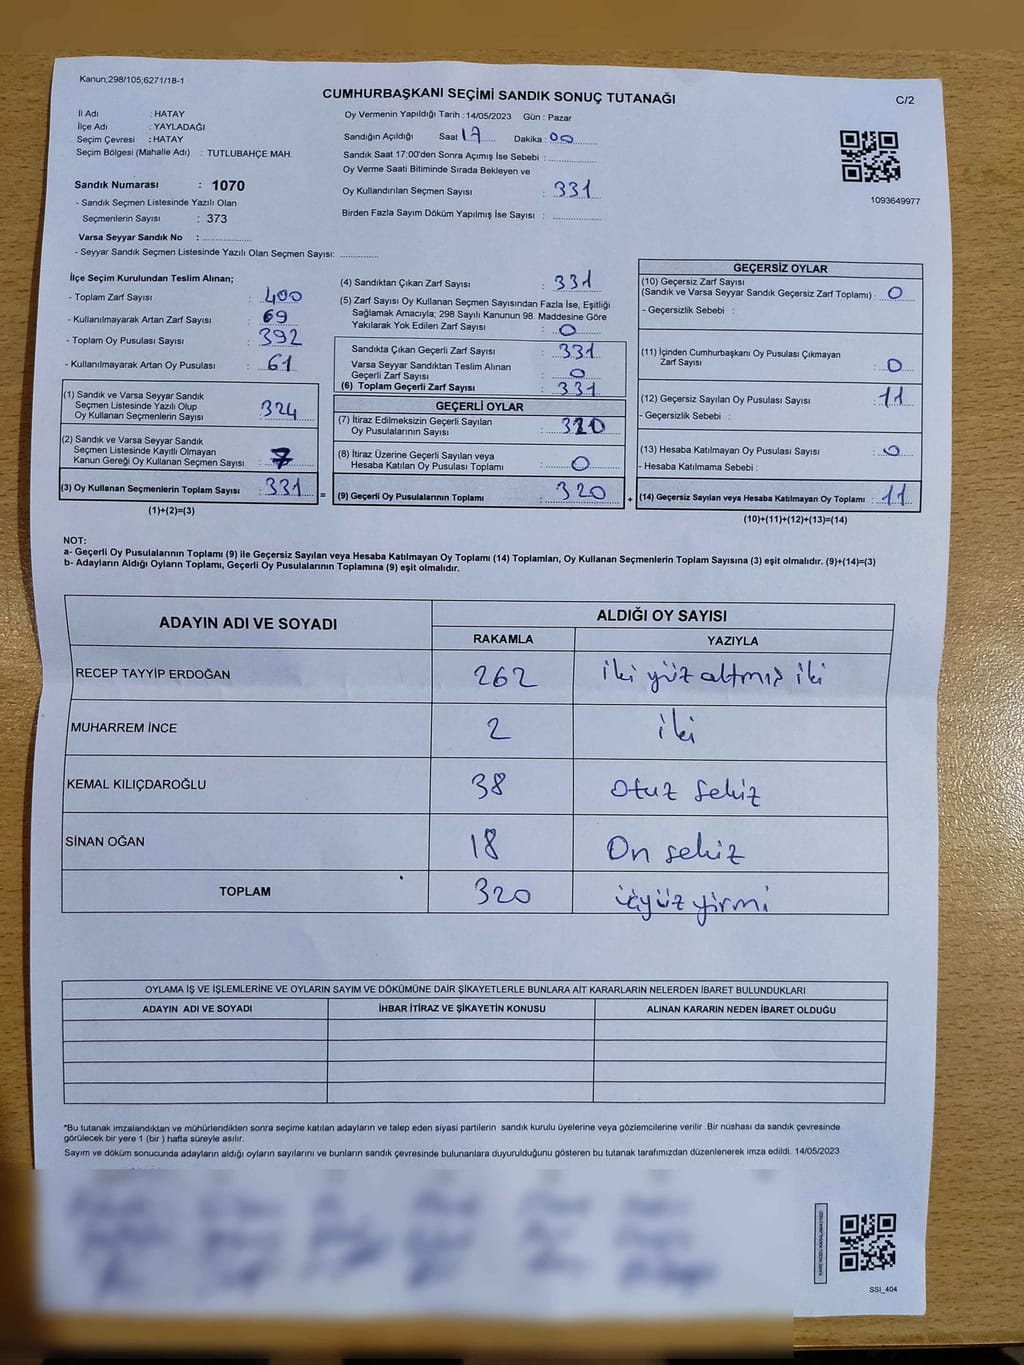 Kanun;298/105;6271/18-1
CUMHURBAŞKANI SEÇİMİ SANDIK SONUÇ TUTANAĞI
C/2
İl Adı : HATAY
İlçe Adı : YAYLADAĞI
Seçim Çevresi : HATAY
Seçim Bölgesi (Mahalle Adı) : TUTLUBAHÇE MAH.
Sandık Numarası : 1070
- Sandık Seçmen Listesinde Yazılı Olan
Seçmenlerin Sayısı : 373
Varsa Seyyar Sandık No : ................
- Seyyar Sandık Seçmen Listesinde Yazılı Olan Seçmen Sayısı: .............
Oy Vermenin Yapıldığı Tarih : 14/05/2023 Gün : Pazar
Sandığın Açıldığı Saat 17 Dakika : 00
Sandık Saat 17:00'den Sonra Açımış İse Sebebi : ................
Oy Verme Saati Bitiminde Sırada Bekleyen ve
Oy Kullandırılan Seçmen Sayısı : 331
Birden Fazla Sayım Döküm Yapılmış İse Sayısı : ................
1093649977
İlçe Seçim Kurulundan Teslim Alınan;
- Toplam Zarf Sayısı : 400
- Kullanılmayarak Artan Zarf Sayısı : 69
- Toplam Oy Pusulası Sayısı : 392
- Kullanılmayarak Artan Oy Pusulası : 61
(1) Sandık ve Varsa Seyyar Sandık
Seçmen Listesinde Yazılı Olup
Oy Kullanan Seçmenlerin Sayısı : 324
(2) Sandık ve Varsa Seyyar Sandık
Seçmen Listesinde Kayıtlı Olmayan
Kanun Gereği Oy Kullanan Seçmen Sayısı : 7
(3) Oy Kullanan Seçmenlerin Toplam Sayısı : 331 =
(1)+(2)=(3)
(4) Sandıktan Çıkan Zarf Sayısı : 331
(5) Zarf Sayısı Oy Kullanan Seçmen Sayısından Fazla İse, Eşitliği
Sağlamak Amacıyla; 298 Sayılı Kanunun 98. Maddesine Göre
Yakılarak Yok Edilen Zarf Sayısı : 0
Sandıkta Çıkan Geçerli Zarf Sayısı : 331
Varsa Seyyar Sandıktan Teslim Alınan
Geçerli Zarf Sayısı : 0
(6) Toplam Geçerli Zarf Sayısı : 331
GEÇERLİ OYLAR
(7) İtiraz Edilmeksizin Geçerli Sayılan
Oy Pusulalarının Sayısı : 320
(8) İtiraz Üzerine Geçerli Sayılan veya
Hesaba Katılan Oy Pusulası Toplamı : 0
(9) Geçerli Oy Pusulalarının Toplamı : 320 +
GEÇERSİZ OYLAR
(10) Geçersiz Zarf Sayısı
(Sandık ve Varsa Seyyar Sandık Geçersiz Zarf Toplamı) : 0
- Geçersizlik Sebebi :
(11) İçinden Cumhurbaşkanı Oy Pusulası Çıkmayan
Zarf Sayısı : 0
(12) Geçersiz Sayılan Oy Pusulası Sayısı : 11
- Geçersizlik Sebebi :
(13) Hesaba Katılmayan Oy Pusulası Sayısı : 0
- Hesaba Katılmama Sebebi :
(14) Geçersiz Sayılan veya Hesaba Katılmayan Oy Toplamı : 11
(10)+(11)+(12)+(13)=(14)
NOT:
a- Geçerli Oy Pusulalarının Toplamı (9) ile Geçersiz Sayılan veya Hesaba Katılmayan Oy Toplamı (14) Toplamları, Oy Kullanan Seçmenlerin Toplam Sayısına (3) eşit olmalıdır. (9)+(14)=(3)
b- Adayların Aldığı Oyların Toplamı, Geçerli Oy Pusulalarının Toplamına (9) eşit olmalıdır.
ADAYIN ADI VE SOYADI
ALDIĞI OY SAYISI
RAKAMLA YAZIYLA
RECEP TAYYİP ERDOĞAN 262 iki yüz altmış iki
MUHARREM İNCE 2 iki
KEMAL KILIÇDAROĞLU 38 Otuz sekiz
SİNAN OĞAN 18 On sekiz
TOPLAM 320 üçyüz yirmi
OYLAMA İŞ VE İŞLEMLERİNE VE OYLARIN SAYIM VE DÖKÜMÜNE DAİR ŞİKAYETLERLE BUNLARA AİT KARARLARIN NELERDEN İBARET BULUNDUKLARI
ADAYIN ADI VE SOYADI İHBAR İTİRAZ VE ŞİKAYETİN KONUSU ALINAN KARARIN NEDEN İBARET OLDUĞU
*Bu tutanak imzalandıktan ve mühürlendikten sonra seçime katılan adayların ve talep eden siyasi partilerin sandık kurulu üyelerine veya gözlemcilerine verilir .Bir nüshası da sandık çevresinde
görülecek bir yere 1 (bir ) hafta süreyle asılır.
Sayım ve döküm sonucunda adayların aldığı oyların sayılarını ve bunların sandık çevresinde bulunanlara duyurulduğunu gösteren bu tutanak tarafımızdan düzenlenerek imza edildi. 14/05/2023
SSI_404